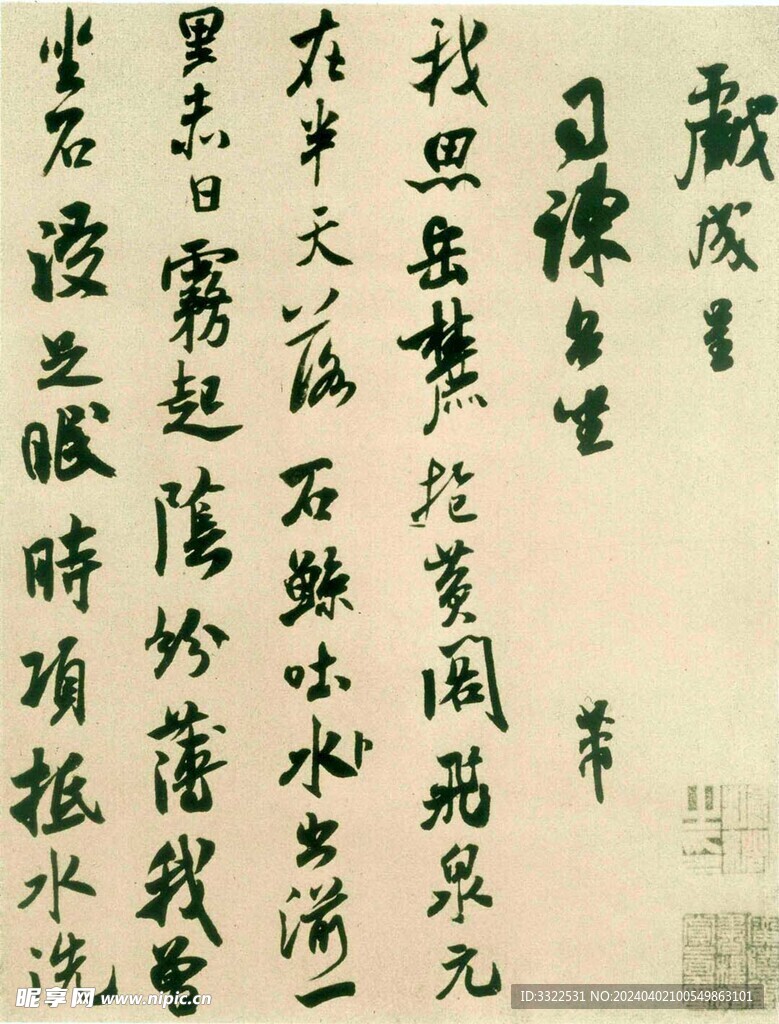 戲成呈
司諫台坐 芾
我思岳麓抱黃閣飛泉元
在半天落石鯨吐水出湔一
里赤日霧起陰紛薄我曾
坐石浸足眠時項抵水洗
昵享网 www.nipic.cn
ID:3322531 NO:20240402100549863101